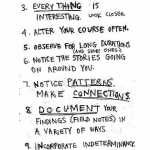 3. EVERYTHING IS
INTERESTING. LOOK CLOSER.
4. ALTER YOUR COURSE OFTEN.
5. OBSERVE FOR LONG DURATIONS
(AND SHORT ONES).
6. NOTICE THE STORIES GOING
ON AROUND YOU.
7. NOTICE PATTERNS.
MAKE CONNECTIONS.
8. DOCUMENT YOUR
FINDINGS (FIELD NOTES) IN
A VARIETY OF WAYS.
9. INCORPORATE INDETERMINANCY.